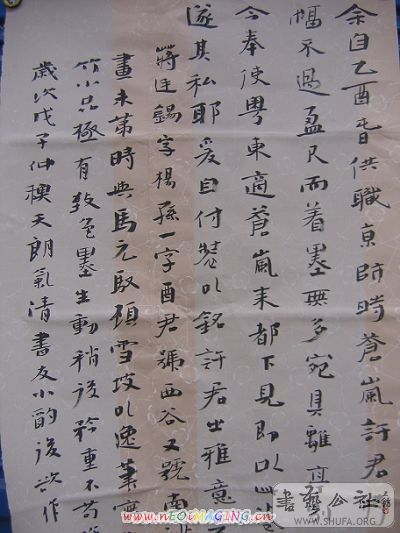 余自乙酉春供職京師時蒼嵐許君
幅不過盈尺而着墨無多宛具離
今奉使粵東適蒼嵐來都下見即以
遂其私耶爰自付裝以銘許君出雅意
蔣廷錫字楊孫一字酉君號西谷又號南
畫未第時與馬元馭顧雪坡以逸筆
竹小品極有致色墨生動稍後矜重不苟
歲次戊子仲穐天朗氣清書友小酌後試作
書藝公社
WWW.SHUFA.ORG
www.nEOiMAGING.cn